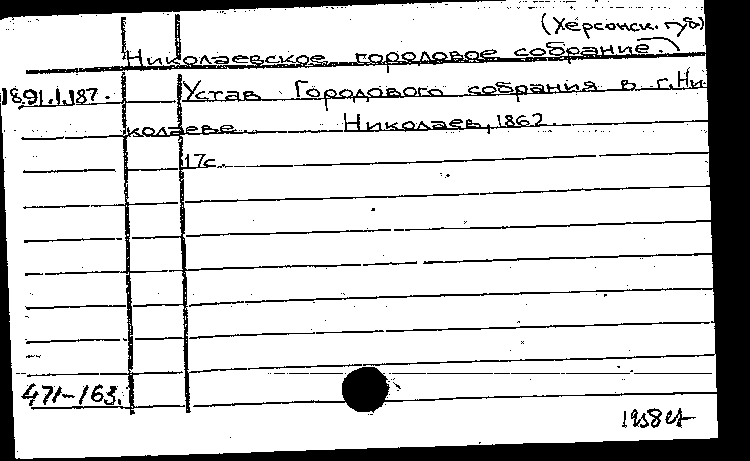 (Херсонск. губ)
Николаевское городовое собрание.
18.91.1.187. Устав Городового собрания в г. Ни-
колаеве. Николаев, 1862.
17с.
471-163.